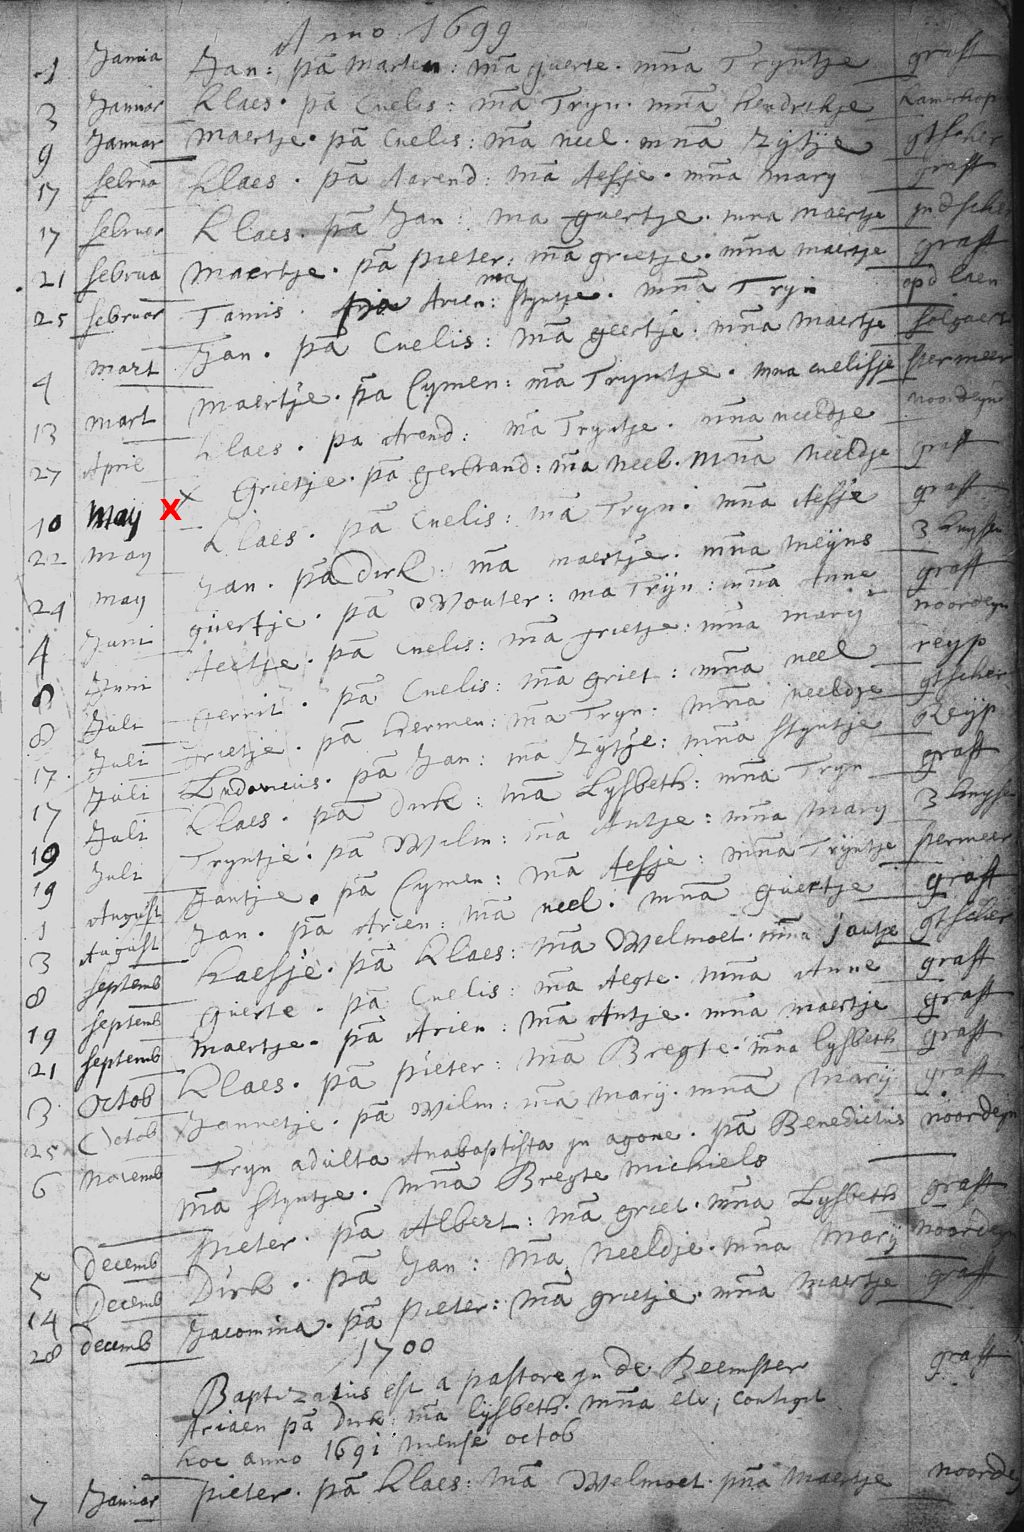 Anno 1699
1 Janua Jan: pã Marten: mã guerte. mña Tryntje graft
3 Januar Klaes. pã Cnelis: mã Tryn. mña hendrikje
9 Januar Maertje. pã Cnelis: mã neel. mña Zijtje gtscher
17 februa Klaes. pã Aarend: mã Aefje. mña mary graft
17 februar Klaes. pã Jan: ma guertje. mna maertje
21 februa Maertje. pã pieter: mã grietje. mña maertje graft
25 februar Tamis. Arien: mã styntje. mña Tryn opd laen
4 mart Jan. pã Cnelis: mã geertje. mña maertje
13 mart maertje. pã Cymen: mã Tryntje. mna cnelisje stermeer
27 April Klaes. pa Arend: mã Tryntje. mña neeldje noordeynd
10 May X x Grietje. pã gerbrand: mã neel. mña neeldje graft
22 may Klaes. pã Cnelis: mã Tryn. mña Aefje graft
24 may Jan. pã Dirk: mã maertje. mña meijns 3 huysen
4 Juni guertje. pã Wouter: ma Trijn: mña Anne graft
8 Juni Aeltje. pã Cnelis: mã grietje: mña marij noordeyn
8 Juli gerrit. pã Cnelis: mã griet: mña neel reyp
17 Juli grietje. pã hermen: mã Tryn: mña neeldje gtscher
17 Juli Ludovicus. pã Jan: mã Zytje: mña styntje Reyp
19 Juli Klaes. pã Dirk: mã Lysbeth: mña Tryn graft
19 Juli Tryntje. pã Wilm: mã Antje: mña mary 3 huysen
1 August Jantje. pã Cymen: mã Aefje: mña Trijntje stermeer
3 August Jan. pã Arien: mã neel. mña guertje graft
8 septemb Klaesje. pã Klaes: mã Welmoet. mña jantje gtscher
19 septemb guerte. pã Cnelis: mã Aegte. mña Anne graft
21 septemb maertje. pã Arien: mã Antje. mña maertje graft
3 Octob Klaes. pã pieter: mã Bregte. mña lysbeth graft
25 Octob Jannetje. pã Wilm: mã mary. mña Marij graft
6 Novemb Tryn adulta Anabaptista in agone. pã Benedictus noordeyn
mã styntje. mña Bregte michiels
5 decemb pieter. pã Albert: mã griet. mña Lysbeth graft
14 Decemb Dirk. pã Jan: mã Neeldje. mña Marij noordeyn
28 decemb Jacomina. pã pieter: mã grietje. mña maertje graft
1700
Baptizatus est a pastore in de Beemster graft
Ariaen pã Dirk: mã lijsbeth. mña etc, contigit
hoc anno 1691 mense octob
7 Januar pieter. pã Klaes: mã Welmoet. pña maertje noorde